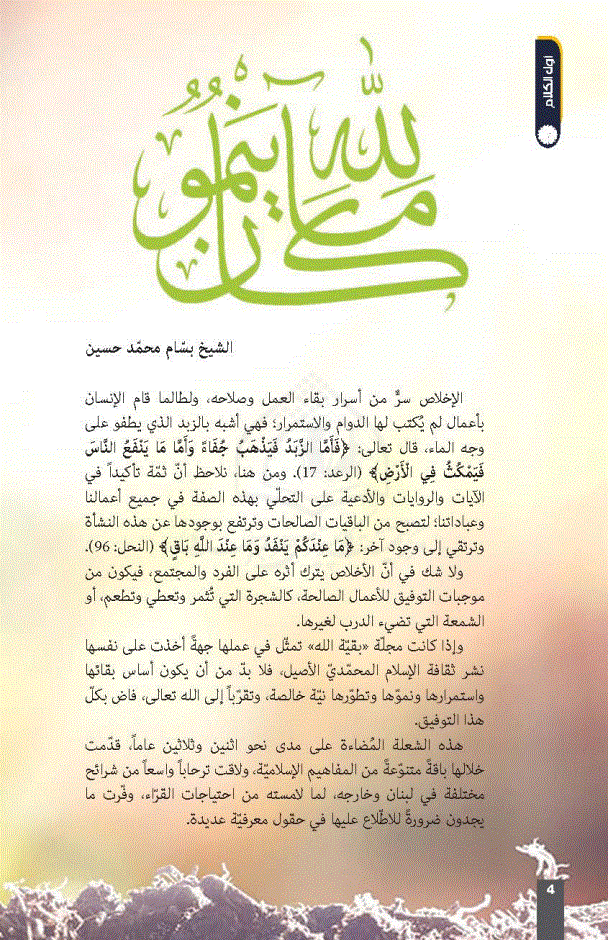 أول الكلام
ما كان لله ينمو
الشيخ بسّام محمّد حسين
الإخلاص سرٌّ من أسرار بقاء العمل وصلاحه، ولطالما قام الإنسان
بأعمال لم يُكتب لها الدوام والاستمرار؛ فهي أشبه بالزبد الذي يطفو على
وجه الماء، قال تعالى: ﴿فَأَمَّا الزَّبَدُ فَيَذْهَبُ جُفَاءً وَأَمَّا مَا يَنْفَعُ النَّاسَ
فَيَمْكُثُ فِي الْأَرْضِ﴾ (الرعد: 17). ومن هنا، نلاحظ أنّ ثمّة تأكيداً في
الآيات والروايات والأدعية على التحلّي بهذه الصفة في جميع أعمالنا
وعباداتنا؛ لتصبح من الباقيات الصالحات وترتفع بوجودها عن هذه النشأة
وترتقي إلى وجود آخر: ﴿مَا عِنْدَكُمْ يَنْفَدُ وَمَا عِنْدَ اللَّهِ بَاقٍ﴾ (النحل: 96).
ولا شك في أنّ الأخلاص يترك أثره على الفرد والمجتمع، فيكون من
موجبات التوفيق للأعمال الصالحة، كالشجرة التي تُثمر وتعطي وتطعم، أو
الشمعة التي تضيء الدرب لغيرها.
وإذا كانت مجلّة «بقيّة الله» تمثّل في عملها جهةً أخذت على نفسها
نشر ثقافة الإسلام المحمّديّ الأصيل، فلا بدّ من أن يكون أساس بقائها
واستمرارها ونموّها وتطوّرها نيّة خالصة، وتقرّباً إلى الله تعالى، فاض بكلّ
هذا التوفيق.
هذه الشعلة المُضاءة على مدى نحو اثنين وثلاثين عاماً، قدّمت
خلالها باقةً متنوّعةً من المفاهيم الإسلاميّة، ولاقت ترحاباً واسعاً من شرائح
مختلفة في لبنان وخارجه، لما لامسته من احتياجات القرّاء، وفّرت ما
يجدون ضرورةً للاطّلاع عليها في حقول معرفيّة عديدة.
4